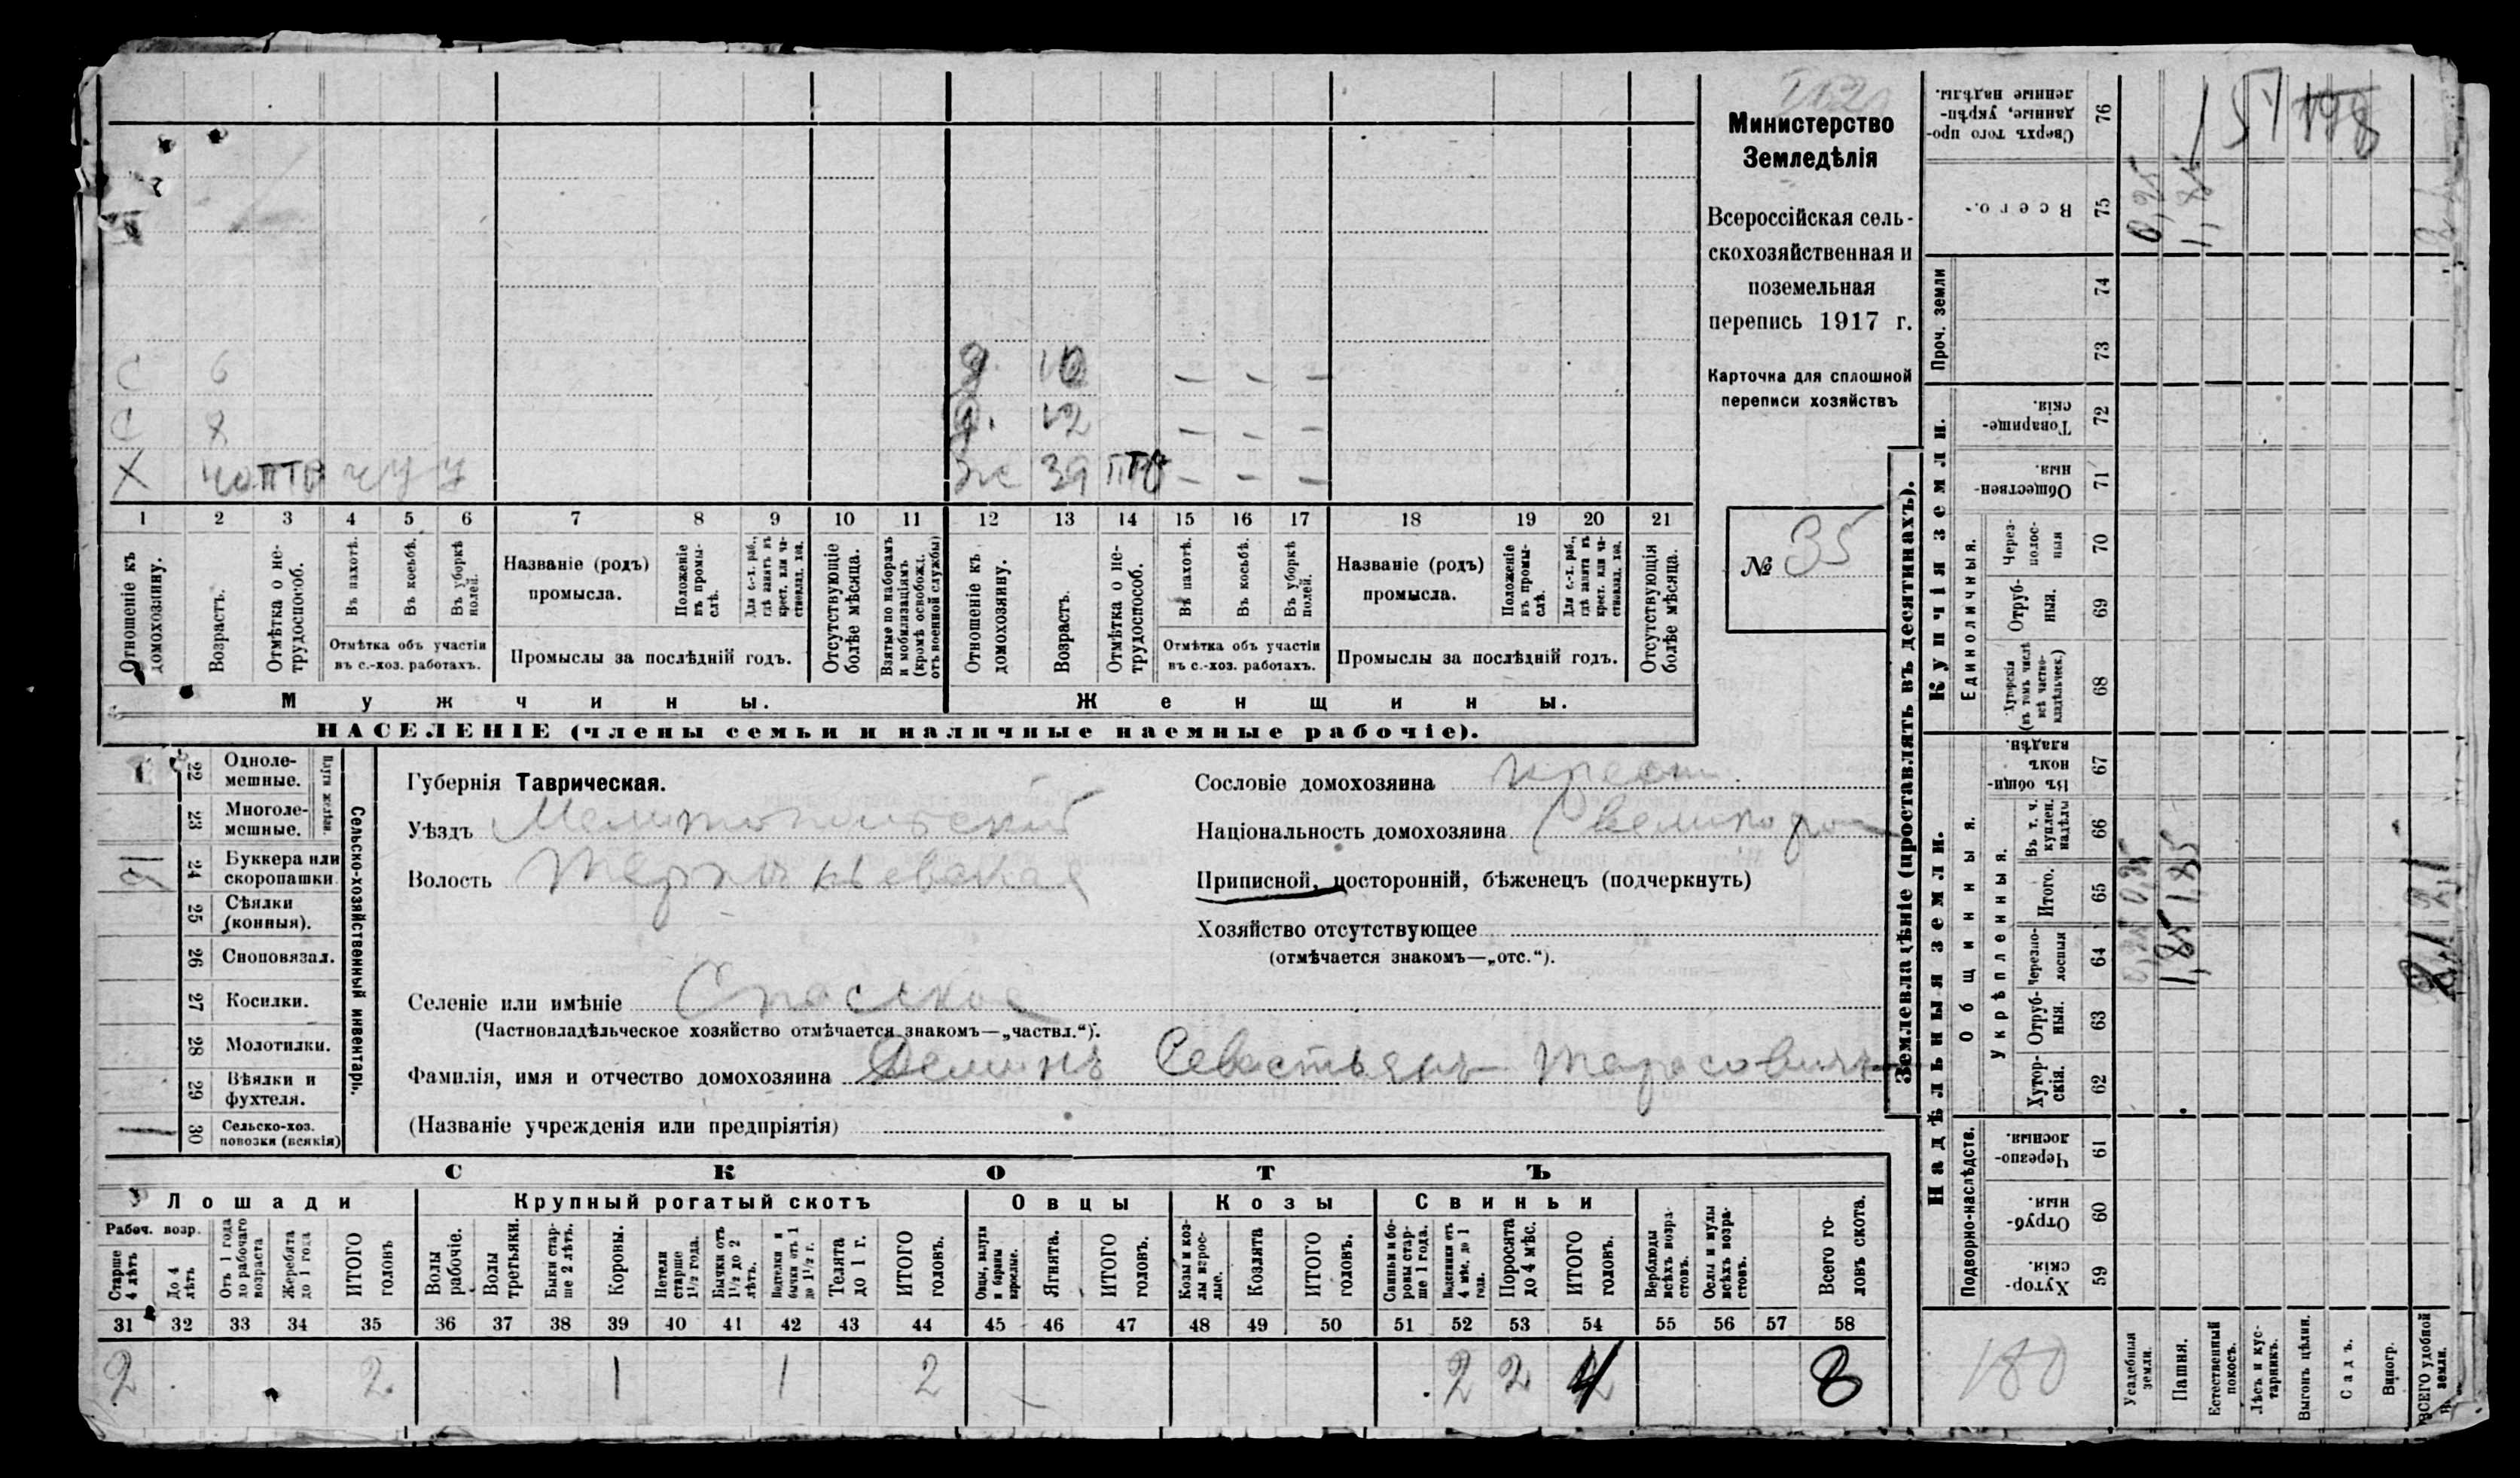 Министерство
Земледѣлія
Всероссійская сель-
скохозяйственная и
поземельная
перепись 1917 г.
Карточка для сплошной
переписи хозяйствъ
№ 35
С 6
С 8
Х 40 ПТР у у у
д 10 – – –
д. 12 – – –
ж 39 – – –
1 2 3 4 5 6 7 8 9 10 11 12 13 14 15 16 17 18 19 20 21
Отношеніе къ домохозяину.
Возрастъ.
Отмѣтка о не-трудоспособ.
Въ пахотѣ.
Въ косьбѣ.
Въ уборкѣ полей.
Отмѣтка объ участіи
въ с.-хоз. работахъ.
Названіе (родъ)
промысла.
Положеніе въ промы-слѣ.
Для с.-х. раб., гдѣ занятъ въ крест. или ча-стновлад. хоз.
Промыслы за послѣдній годъ.
Отсутствующіе болѣе мѣсяца.
Взятые по наборамъ и мобилизаціямъ (кромѣ освобожд. отъ военной службы)
Отношеніе къ домохозяину.
Возрастъ.
Отмѣтка о не-трудоспособ.
Въ пахотѣ.
Въ косьбѣ.
Въ уборкѣ полей.
Отмѣтка объ участіи
въ с.-хоз. работахъ.
Названіе (родъ)
промысла.
Положеніе въ промы-слѣ.
Для с.-х. раб., гдѣ занята въ крест. или ча-стновлад. хоз.
Промыслы за послѣдній годъ.
Отсутствующія болѣе мѣсяца.
Мужчины.
Женщины.
НАСЕЛЕНІЕ (члены семьи и наличные наемные рабочіе).
22 Одноле-мешные.
23 Многоле-мешные.
Плуги желѣзн.
24 Буккера или скоропашки
25 Сѣялки (конныя).
26 Сноповязал.
27 Косилки.
28 Молотилки.
29 Вѣялки и фухтеля.
30 Сельско-хоз. повозки (всякія)
Сельско-хозяйственный инвентарь.
Губернія Таврическая.
Уѣздъ Мелитопольскій
Волость
Селеніе или имѣніе Спасское
(Частновладѣльческое хозяйство отмѣчается знакомъ—„частвл.“).
Фамилія, имя и отчество домохозяина Деминъ Севастьянъ Тарасовичъ
(Названіе учрежденія или предпріятія)
Сословіе домохозяина крест.
Національность домохозяина
Приписной, посторонній, бѣженецъ (подчеркнуть)
Хозяйство отсутствующее
(отмѣчается знакомъ—„отс.“).
СКОТЪ
Лошади
Крупный рогатый скотъ
Овцы
Козы
Свиньи
Рабоч. возр.
Старше 4 лѣтъ
До 4 лѣтъ
Отъ 1 года до рабочаго возраста
Жеребята до 1 года
ИТОГО головъ
Волы рабочіе.
Волы третьяки.
Быки стар-ше 2 лѣтъ.
Коровы.
Нетели старше 1½ года.
Бычки отъ 1½ до 2 лѣтъ.
Подтелки и бычки отъ 1 до 1½ г.
Телята до 1 г.
ИТОГО головъ.
Овцы, валухи и бараны взрослые.
Ягнята.
ИТОГО головъ.
Козы и коз-лы взрос-лые.
Козлята
ИТОГО головъ.
Свиньи и бо-ровы стар-ше 1 года.
Подсвинки отъ 4 мѣс. до 1 года.
Поросята до 4 мѣс.
ИТОГО головъ.
Верблюды всѣхъ возра-стовъ.
Ослы и мулы всѣхъ возра-стовъ.
Всего го-ловъ скота.
31 32 33 34 35 36 37 38 39 40 41 42 43 44 45 46 47 48 49 50 51 52 53 54 55 56 57 58
2 2. 1 1 2 2 2 4 8
Землевладѣніе (проставлять въ десятинахъ).
Сверхъ того про-данные, укрѣп-ленные надѣлы. 76
Всего. 75
0,25
1,85
Проч. земли
74
73
Купчія земли.
Товарище-скія. 72
Обществен-ныя. 71
Единоличныя.
Через-полос-ныя 70
Отруб-ныя. 69
Хуторскія (въ томъ числѣ всѣ частно-владѣльческ.) 68
Надѣльныя земли.
Общинныя.
Въ общи-номъ владѣн. 67
Укрѣпленныя.
Въ т. ч. куплен. надѣлы 66
Итого. 65
0,25
1,85
2,1
Черезпо-лосныя 64
1,85
Отруб-ныя. 63
Хутор-скія. 62
Подворно-наслѣдств.
Черезпо-лосныя. 61
Отруб-ныя. 60
Хутор-скія. 59
180
Усадебныя земли.
Пашня.
Естественный покосъ.
Лѣсъ и кус-тарникъ.
Выгонъ цѣлин.
Садъ.
Виногр.
ВСЕГО удобной земли.